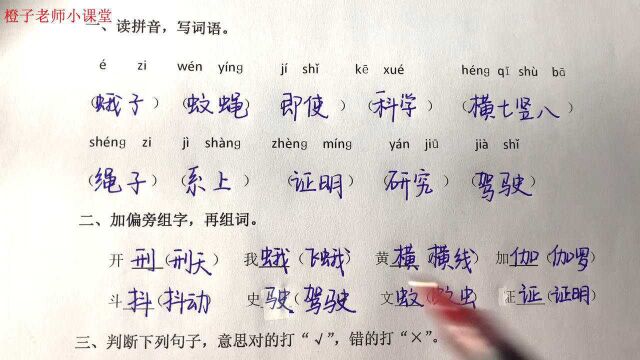 橙子老师小课堂
一、读拼音，写词语。
é zi wén yíng jí shǐ kē xué héng qī shù bā
(蛾子) (蚊蝇) (即使) (科学) (横七竖八)
shéng zi jì shàng zhèng míng yán jiū jià shǐ
(绳子) (系上) (证明) (研究) (驾驶)
二、加偏旁组字，再组词。
开 刑 (刑天) 我 蛾 (飞蛾) 黄 横 (横线) 加 伽 (伽罗)
斗 抖 (抖动) 史 驶 (驾驶) 文 蚊 (蚊虫) 正 证 (证明)
三、判断下列句子，意思对的打“√”，错的打“×”。